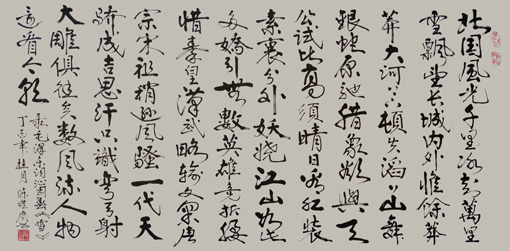 北国风光千里冰封万里
雪飘望长城内外惟余莽
莽大河上下顿失滔滔山舞
银蛇原驰腊象欲与天
公试比高须晴日看红装
素裹分外妖娆江山如此
多娇引无数英雄竞折腰
惜秦皇汉武略输文采唐
宗宋祖稍逊风骚一代天
骄成吉思汗只识弯弓射
大雕俱往矣数风流人物
还看今朝 录毛泽东词沁园春《雪》
丁亥年桂月